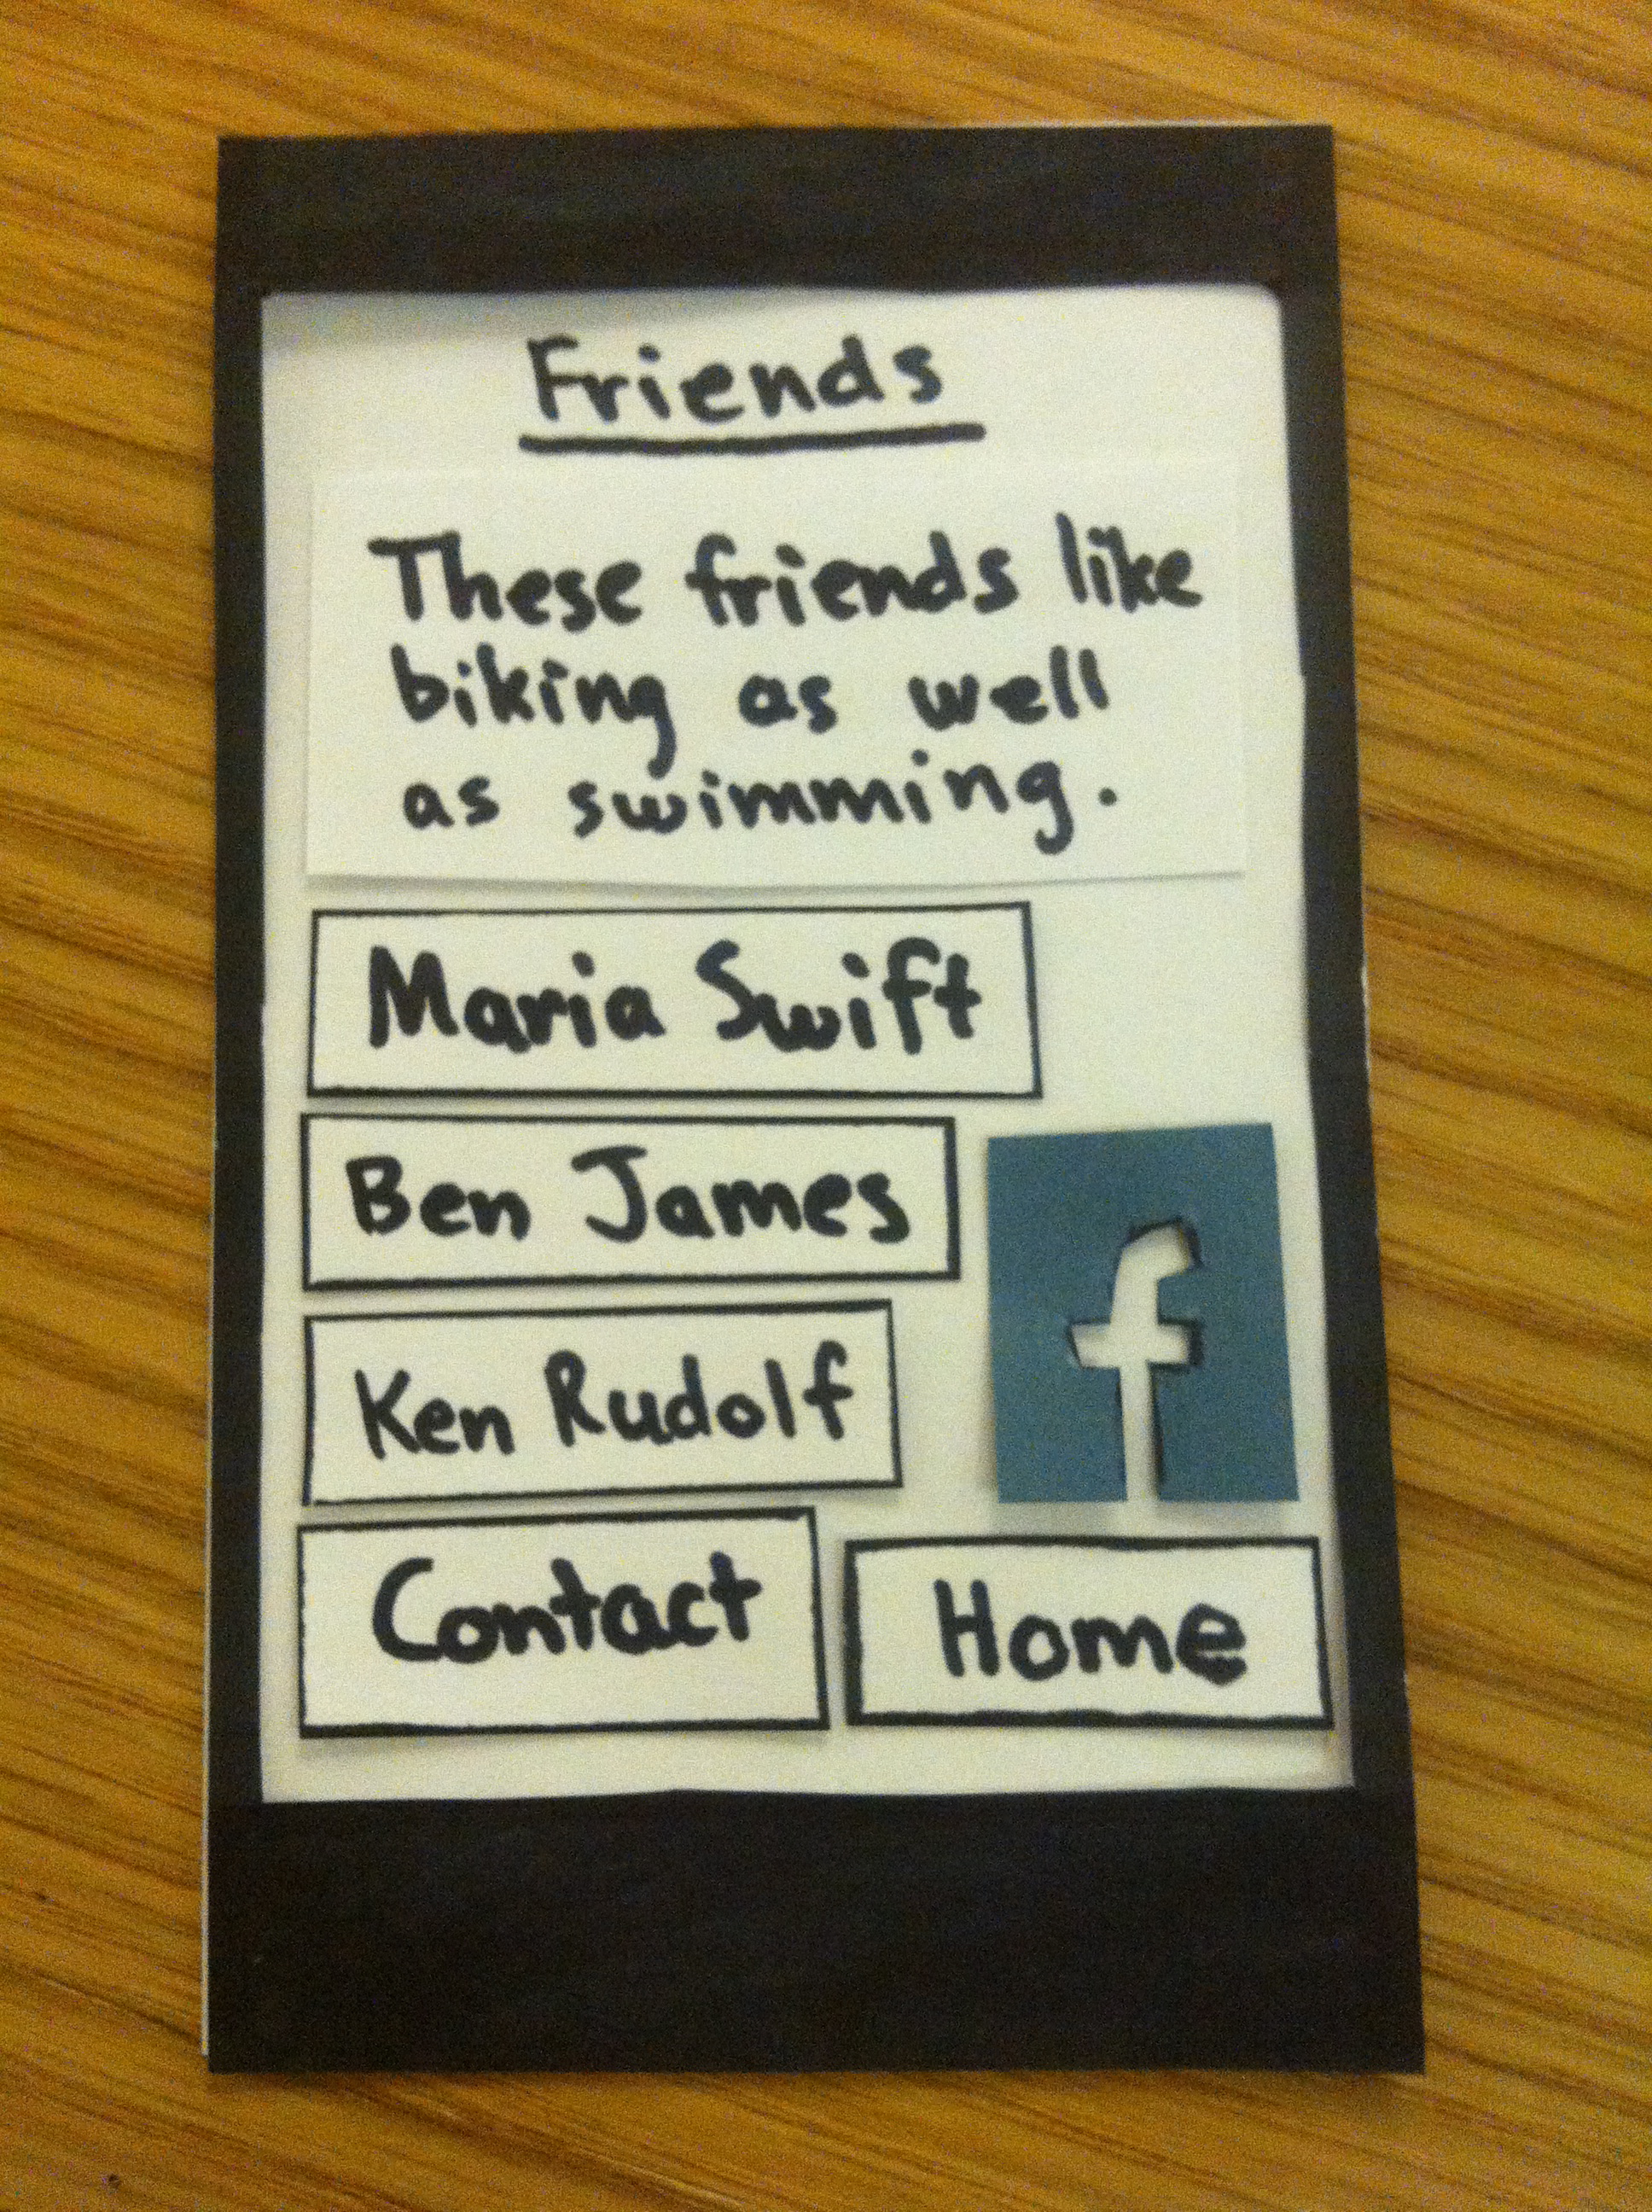 Friends
These friends like
biking as well
as swimming.
Maria Swift
Ben James
Ken Rudolf
f
Contact
Home